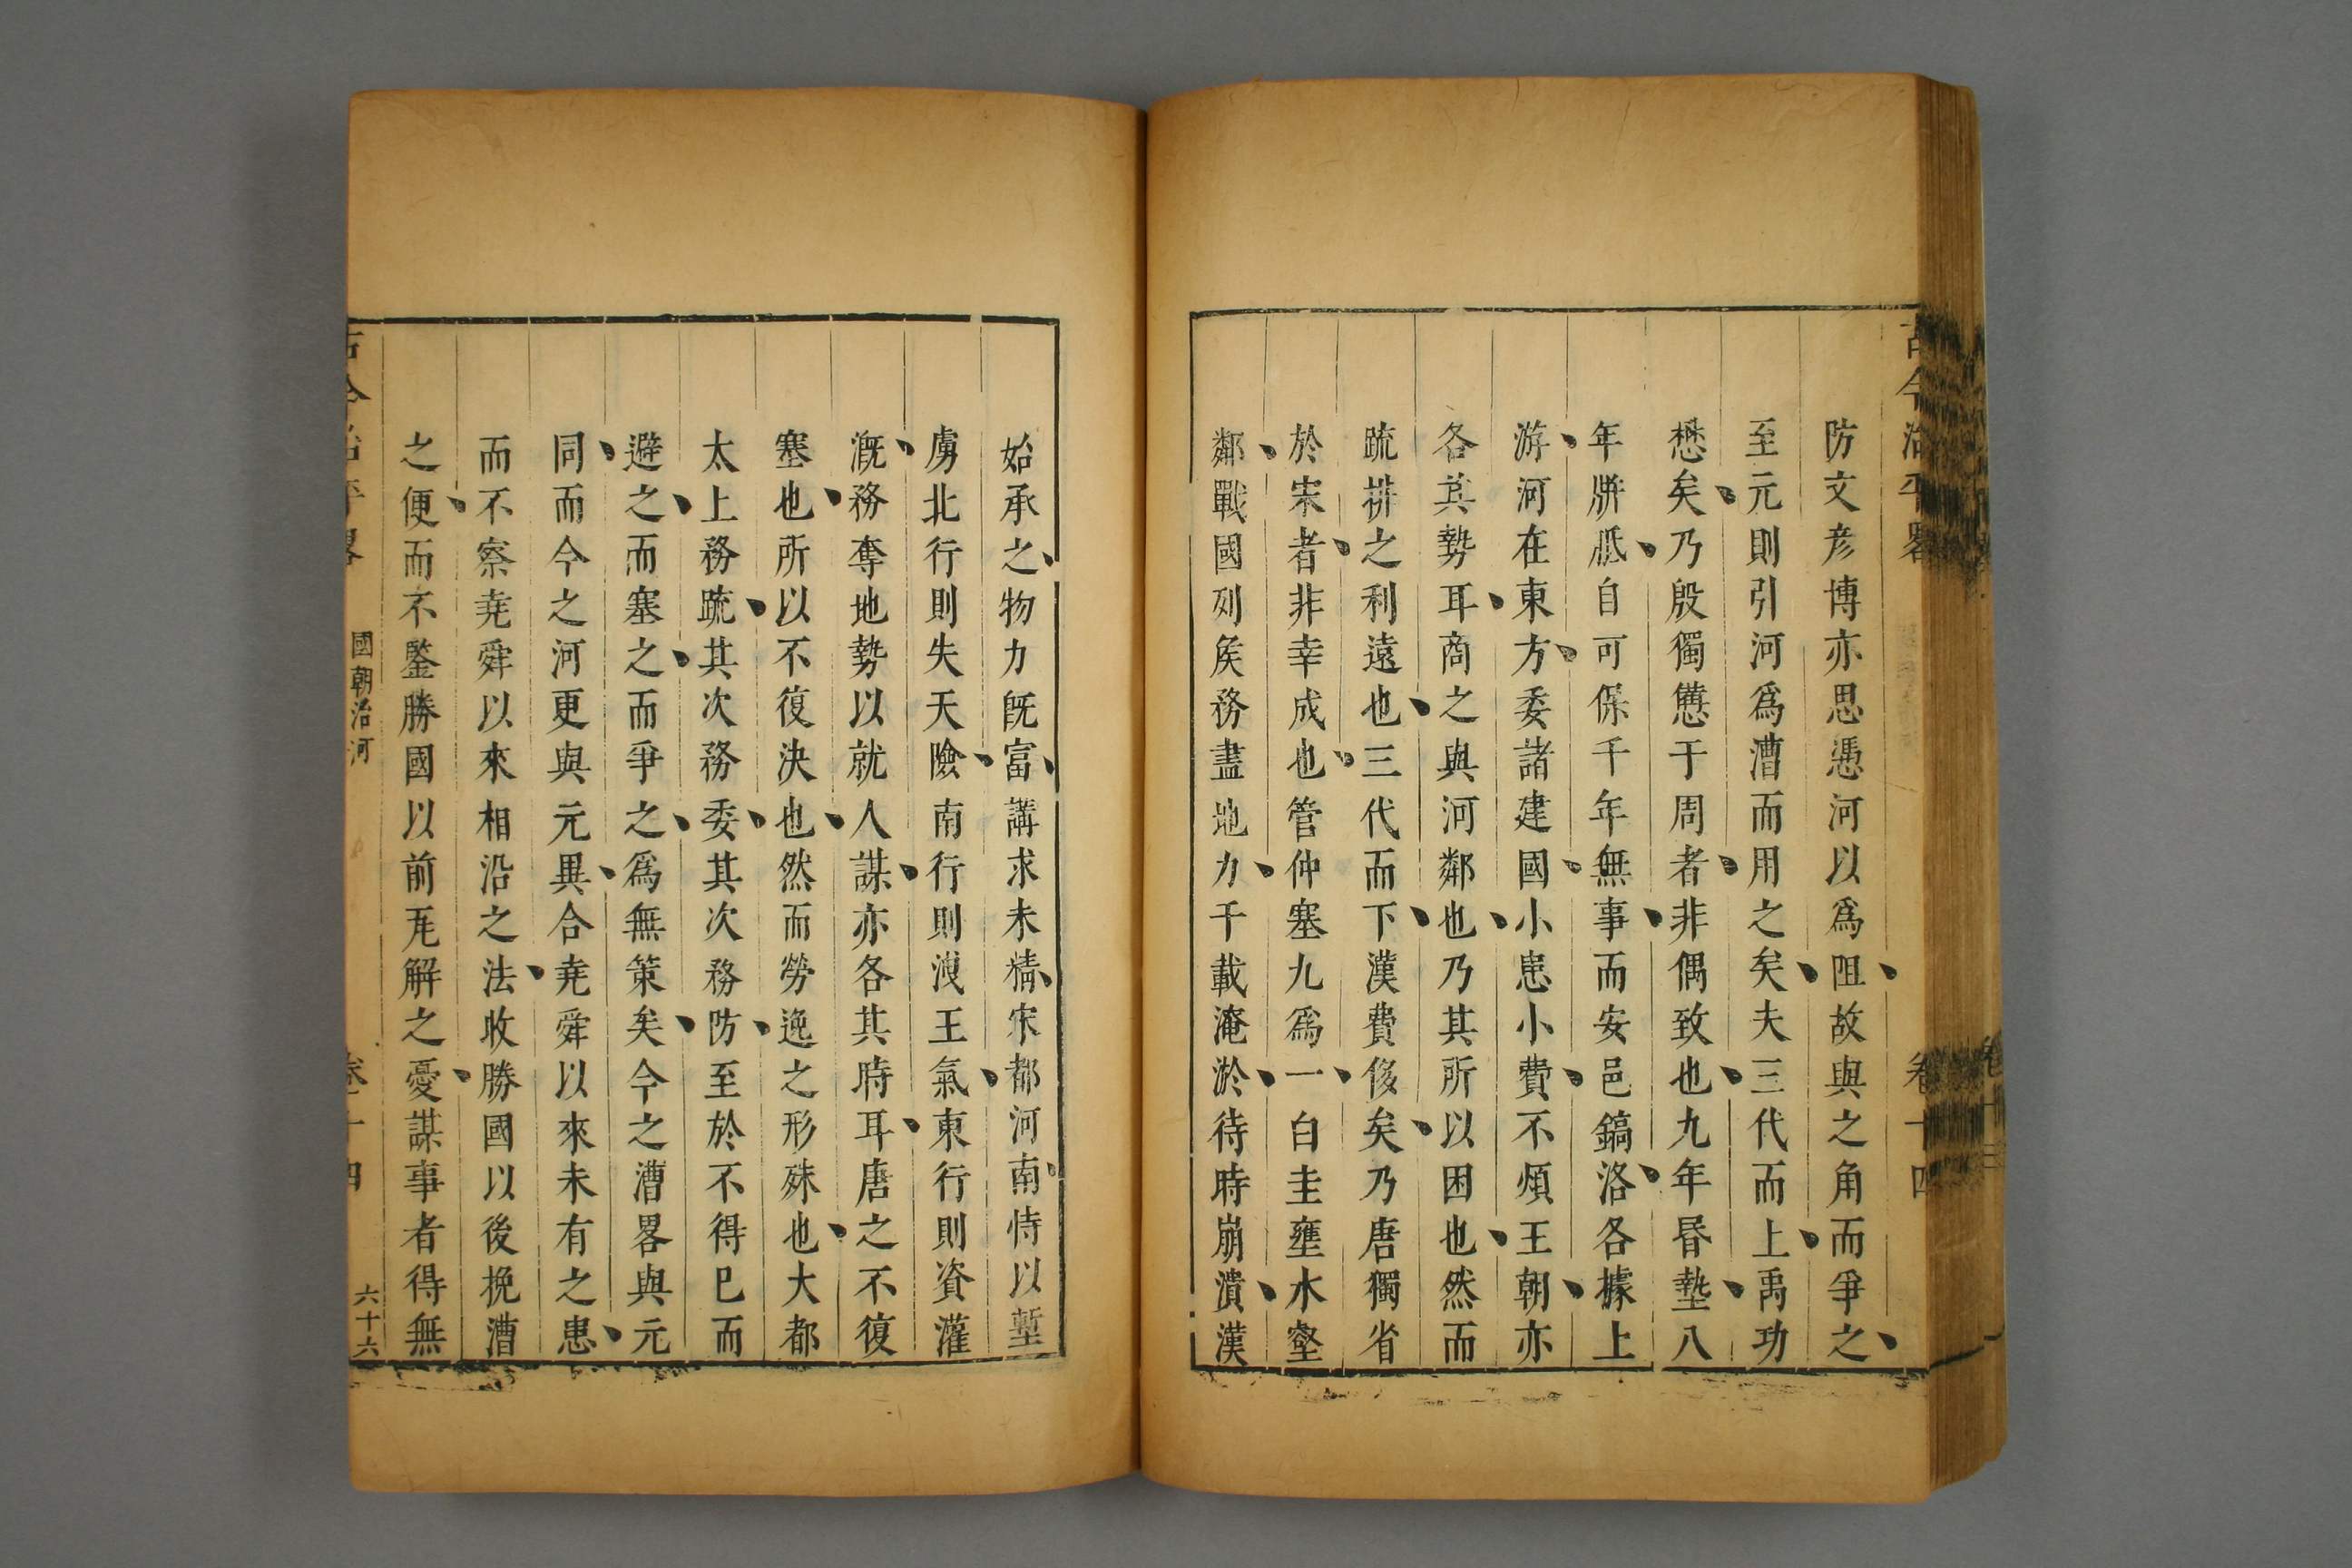 古今治平畧 卷十四
防文彦博亦思憑河以爲阻故與之角而爭之
至元則引河爲漕而用之矣夫三代而上禹功
懋矣乃殷獨憊于周者非偶致也九年昬墊八
年胼胝自可保千年無事而安邑鎬洛各據上
游河在東方委諸建國小患小費不煩王朝亦
各其勢耳商之與河鄰也乃其所以困也然而
疏排之利遠也三代而下漢費侈矣乃唐獨省
於宋者非幸成也管仲塞九爲一白圭壅水壑
鄰戰國列矦務盡地力千載淹淤待時崩潰漢
始承之物力旣富講求未精宋都河南恃以塹
虜北行則失天險南行則洩王氣東行則資灌
漑務奪地勢以就人謀亦各其時耳唐之不復
塞也所以不復決也然而勞逸之形殊也大都
太上務疏其次務委其次務防至於不得已而
避之而塞之而爭之爲無策矣今之漕畧與元
同而今之河更與元異合堯舜以來未有之患
而不察堯舜以來相沿之法收勝國以後挽漕
之便而不鑒勝國以前瓦解之憂謀事者得無
古今治平畧 國朝治河 卷十四 六十六